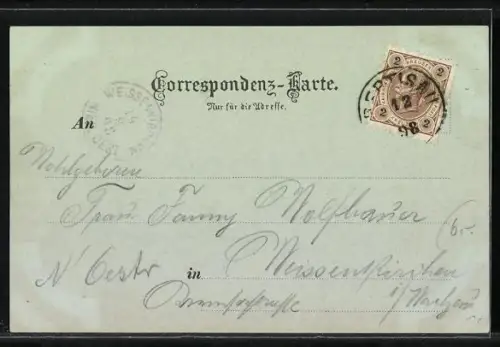 Correspondenz-Karte.
Nur für die Adresse.
An
2 2
2 2
PERTISAU
12
98
WEISSENKIRCHEN
Wohlgeboren
Frau Fanny Wolfbauer
N Oestr in Weissenkirchen